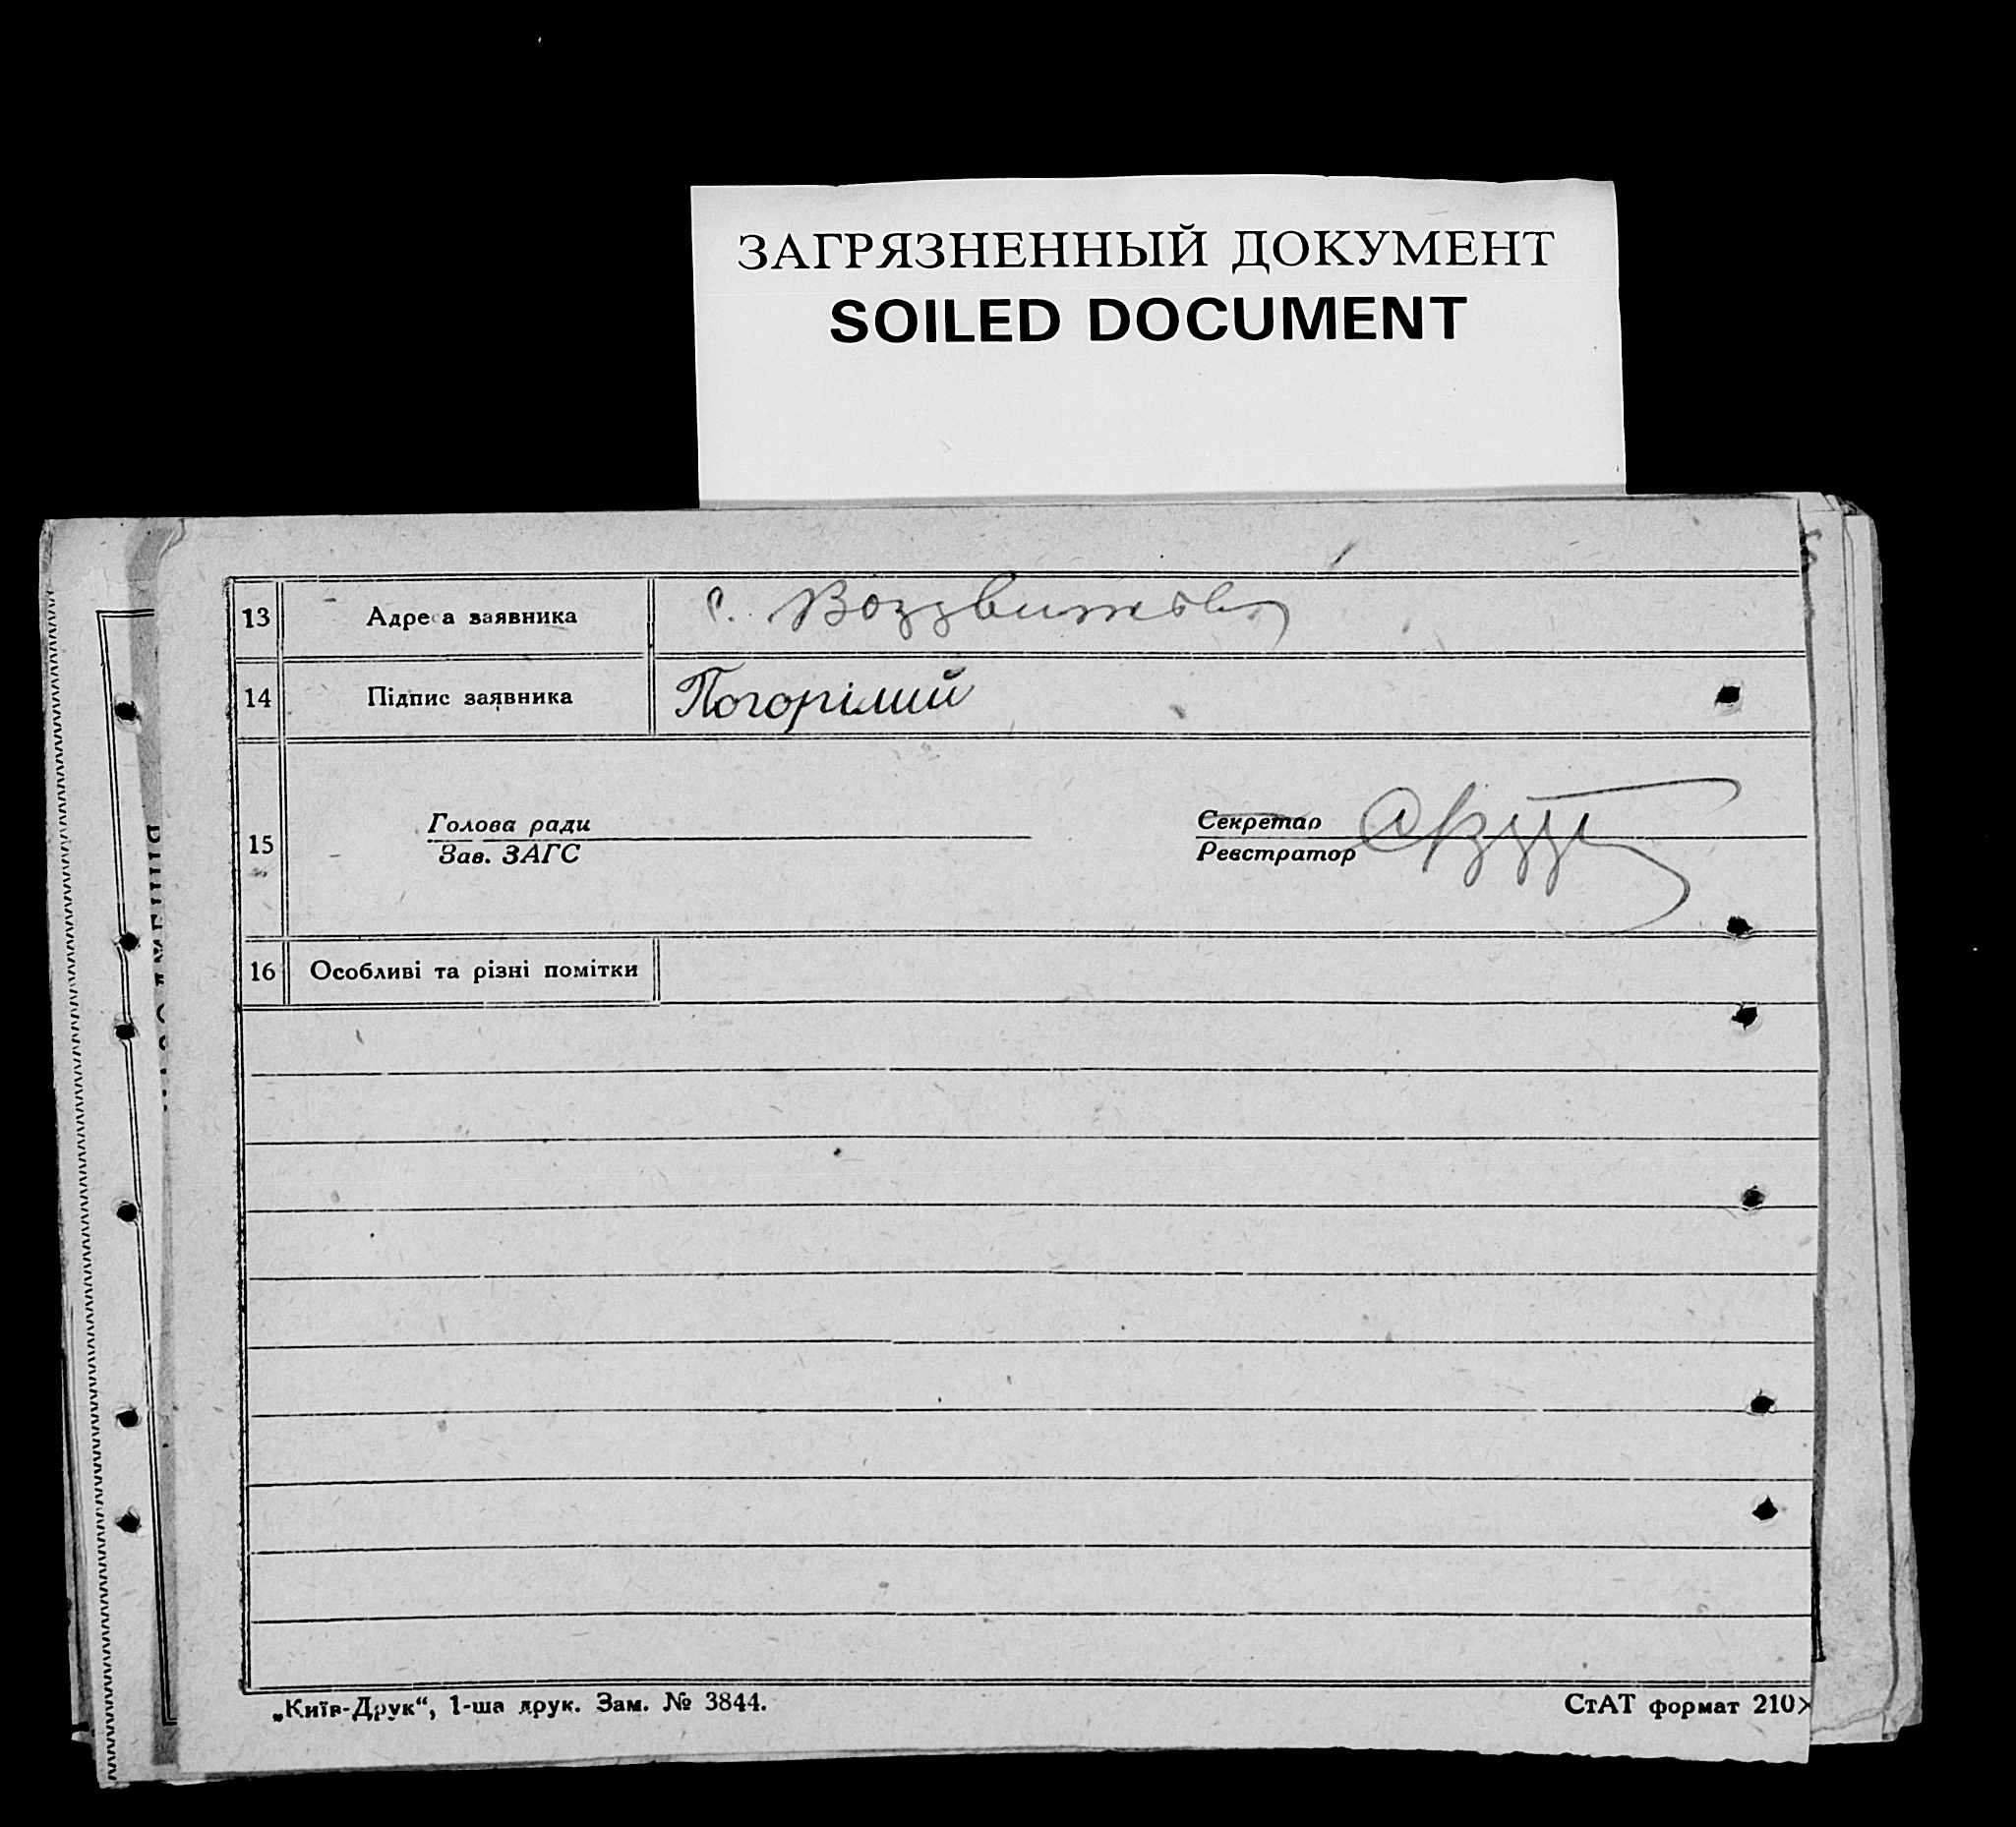 ЗАГРЯЗНЕННЫЙ ДОКУМЕНТ
SOILED DOCUMENT
13 Адреса заявника с. Воздвижівка
14 Підпис заявника Погорілий
15
Голова ради
Зав. ЗАГС
Секретар
Реєстратор
16 Особливі та різні помітки
„Київ-Друк“, 1-ша друк. Зам. № 3844.
СтАТ формат 210×